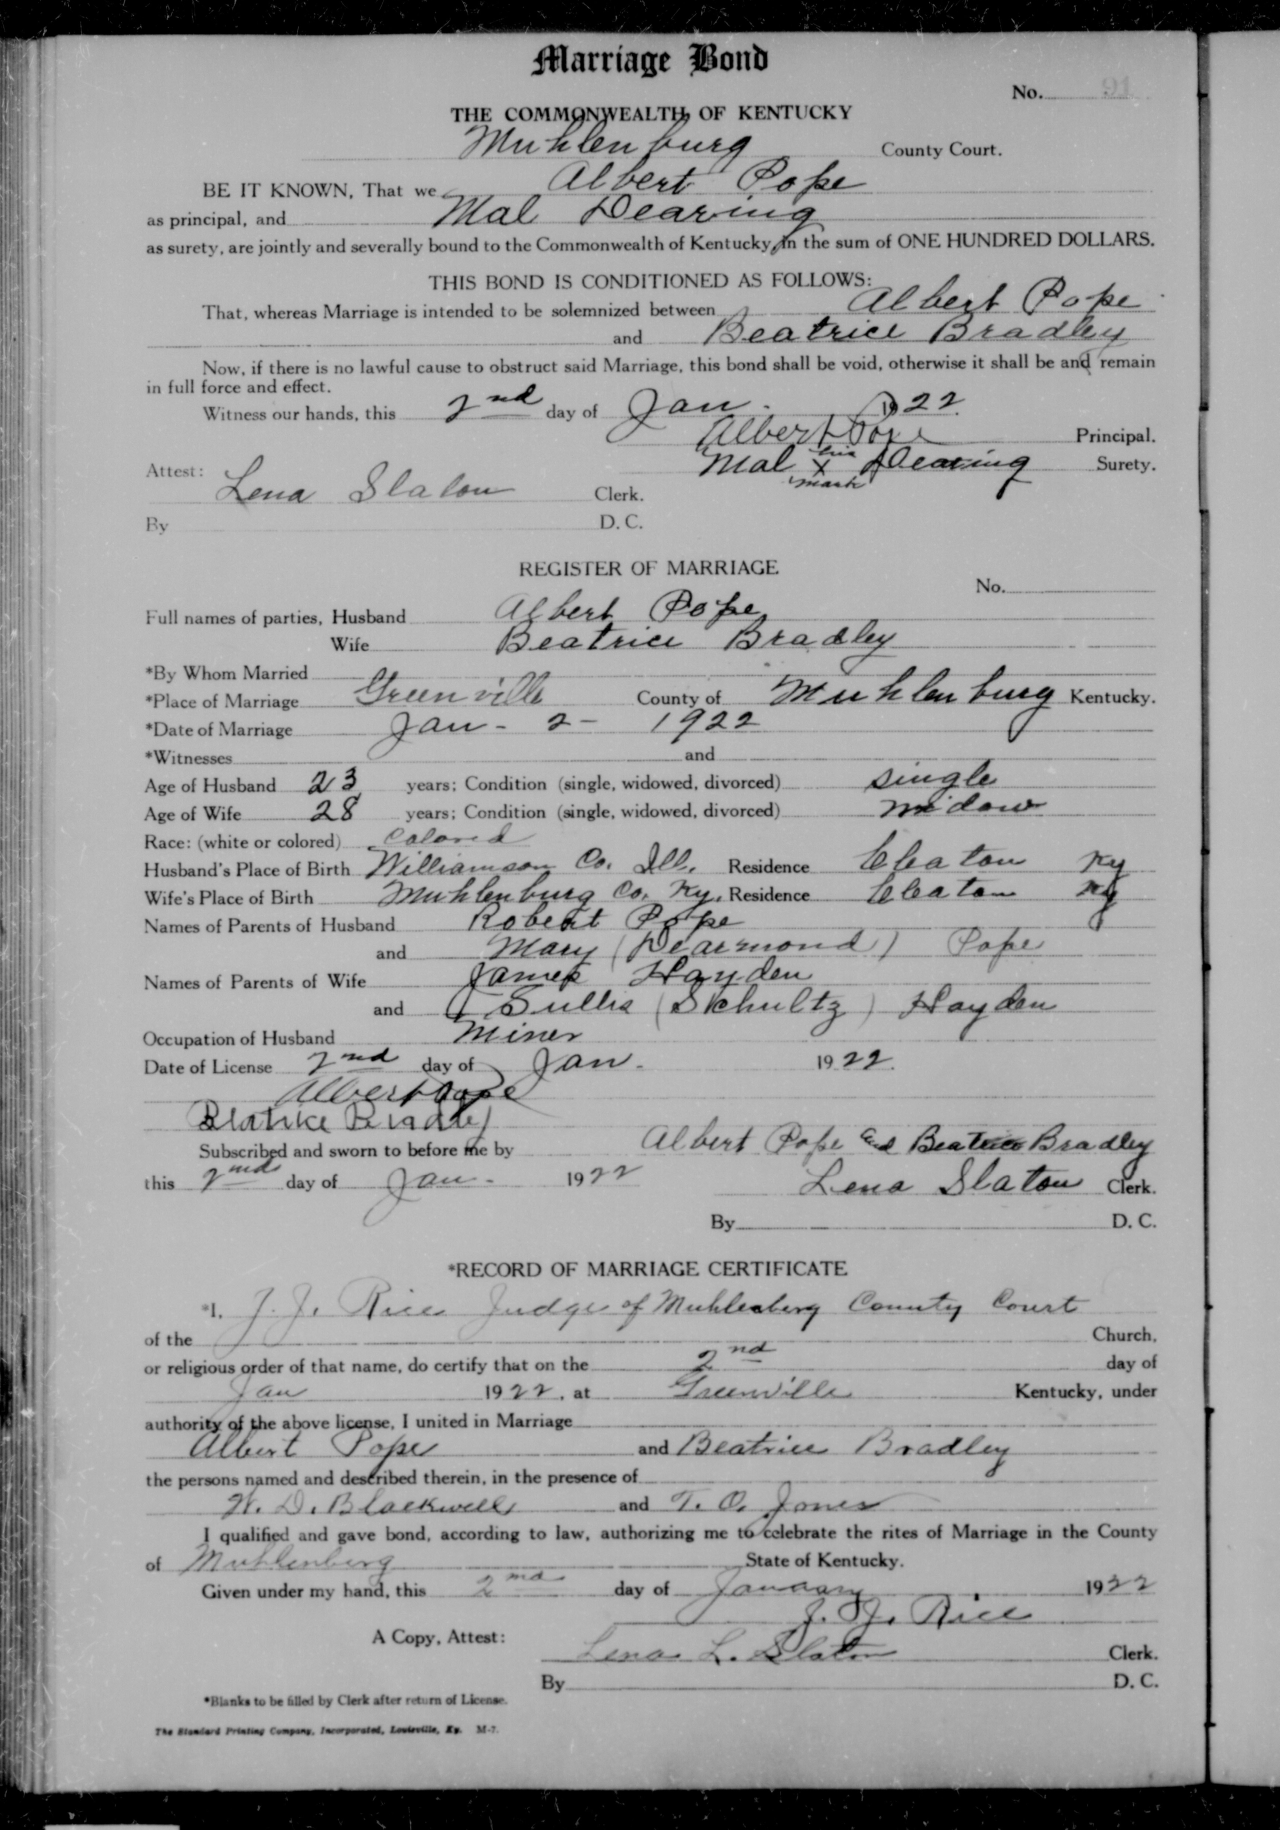 Marriage Bond
No. 91
THE COMMONWEALTH OF KENTUCKY
Muhlenburg County Court.
BE IT KNOWN, That we Albert Pope
as principal, and Mal Dearing
as surety, are jointly and severally bound to the Commonwealth of Kentucky, in the sum of ONE HUNDRED DOLLARS.
THIS BOND IS CONDITIONED AS FOLLOWS:
That, whereas Marriage is intended to be solemnized between Albert Pope
and Beatrice Bradley
Now, if there is no lawful cause to obstruct said Marriage, this bond shall be void, otherwise it shall be and remain
in full force and effect.
Witness our hands, this 2nd day of Jan. 1922
Albert Pope Principal.
Mal his X mark Dearing Surety.
Attest: Lena Slaton Clerk.
By D. C.
REGISTER OF MARRIAGE
No.
Full names of parties, Husband Albert Pope
Wife Beatrice Bradley
*By Whom Married
*Place of Marriage Greenville County of Muhlenburg Kentucky.
*Date of Marriage Jan - 2 - 1922
*Witnesses and
Age of Husband 23 years; Condition (single, widowed, divorced) single
Age of Wife 28 years; Condition (single, widowed, divorced) widow
Race: (white or colored) Colored
Husband's Place of Birth Williamson Co. Ill. Residence Cleaton Ky
Wife's Place of Birth Muhlenburg Co. Ky. Residence Cleaton Ky
Names of Parents of Husband Robert Pope
and Mary (Dearmond) Pope
Names of Parents of Wife James Hayden
and (Schultz) Hayden
Occupation of Husband Miner
Date of License 2nd day of Jan. 1922.
Albert Pope
Beatrice Bradley
Subscribed and sworn to before me by Albert Pope and Beatrice Bradley
this 2nd day of Jan. 1922
Lena Slaton Clerk.
By D. C.
*RECORD OF MARRIAGE CERTIFICATE
*I, J. J. Rice Judge of Muhlenberg County Court
of the Church,
or religious order of that name, do certify that on the 2nd day of
Jan 1922, at Greenville Kentucky, under
authority of the above license, I united in Marriage
Albert Pope and Beatrice Bradley
the persons named and described therein, in the presence of
W. D. Blackwell and T. O. Jones
I qualified and gave bond, according to law, authorizing me to celebrate the rites of Marriage in the County
of Muhlenberg State of Kentucky.
Given under my hand, this 2nd day of January 1922
J. J. Rice
A Copy, Attest:
Lena L. Slaton Clerk.
By D. C.
*Blanks to be filled by Clerk after return of License.
The Standard Printing Company, Incorporated, Louisville, Ky. M-7.